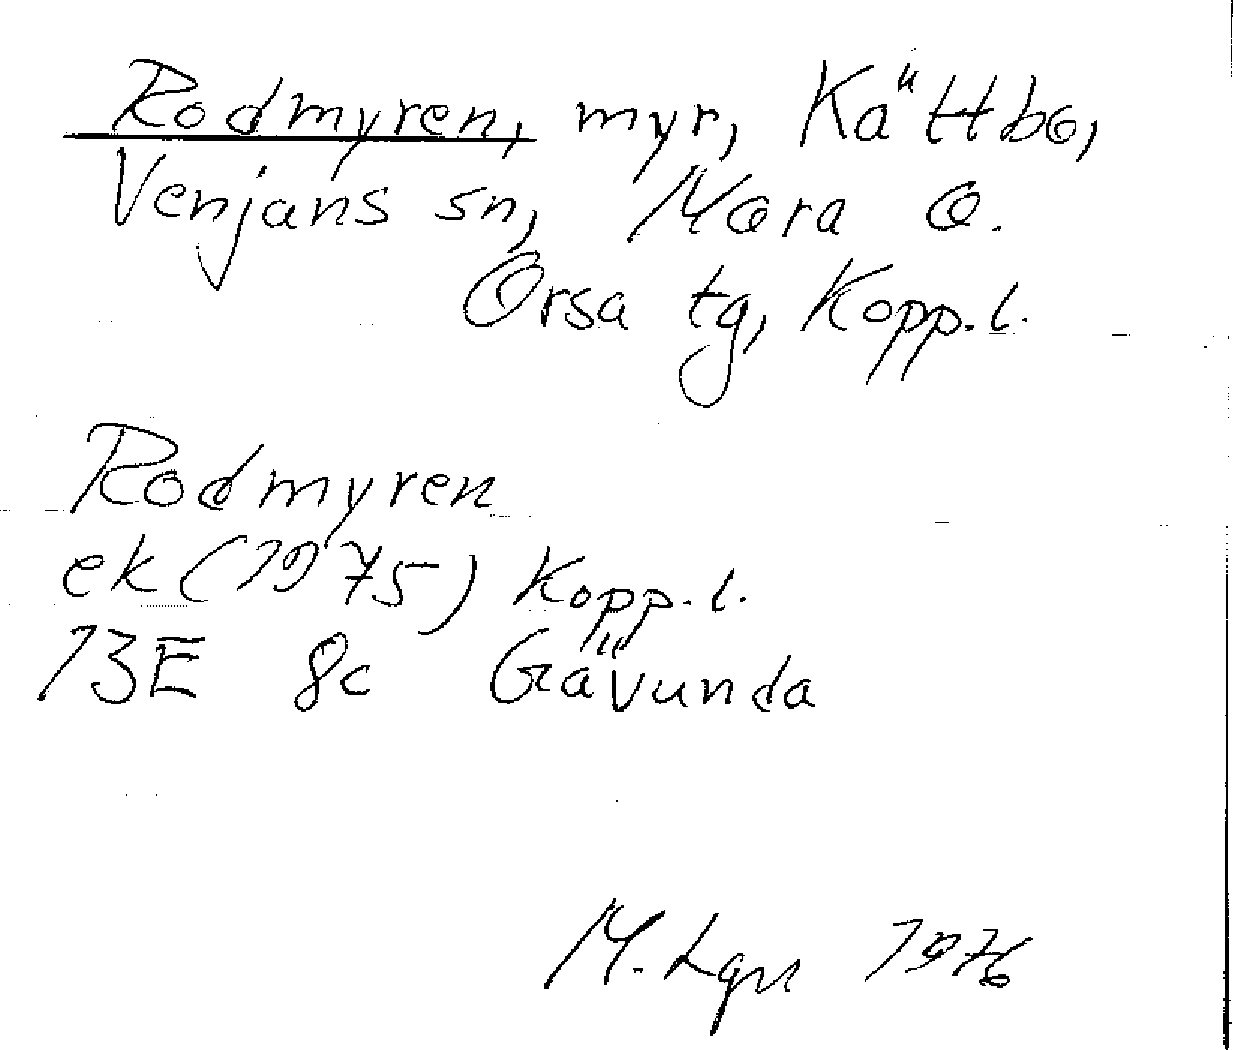 Rodmyren, myr, Kättbo,
Venjans sn, Mora o.
Orsa tg, Kopp. l.
Rodmyren
ek (1975) Kopp. l.
13E 8c Gävunda
M. Lgn 1976